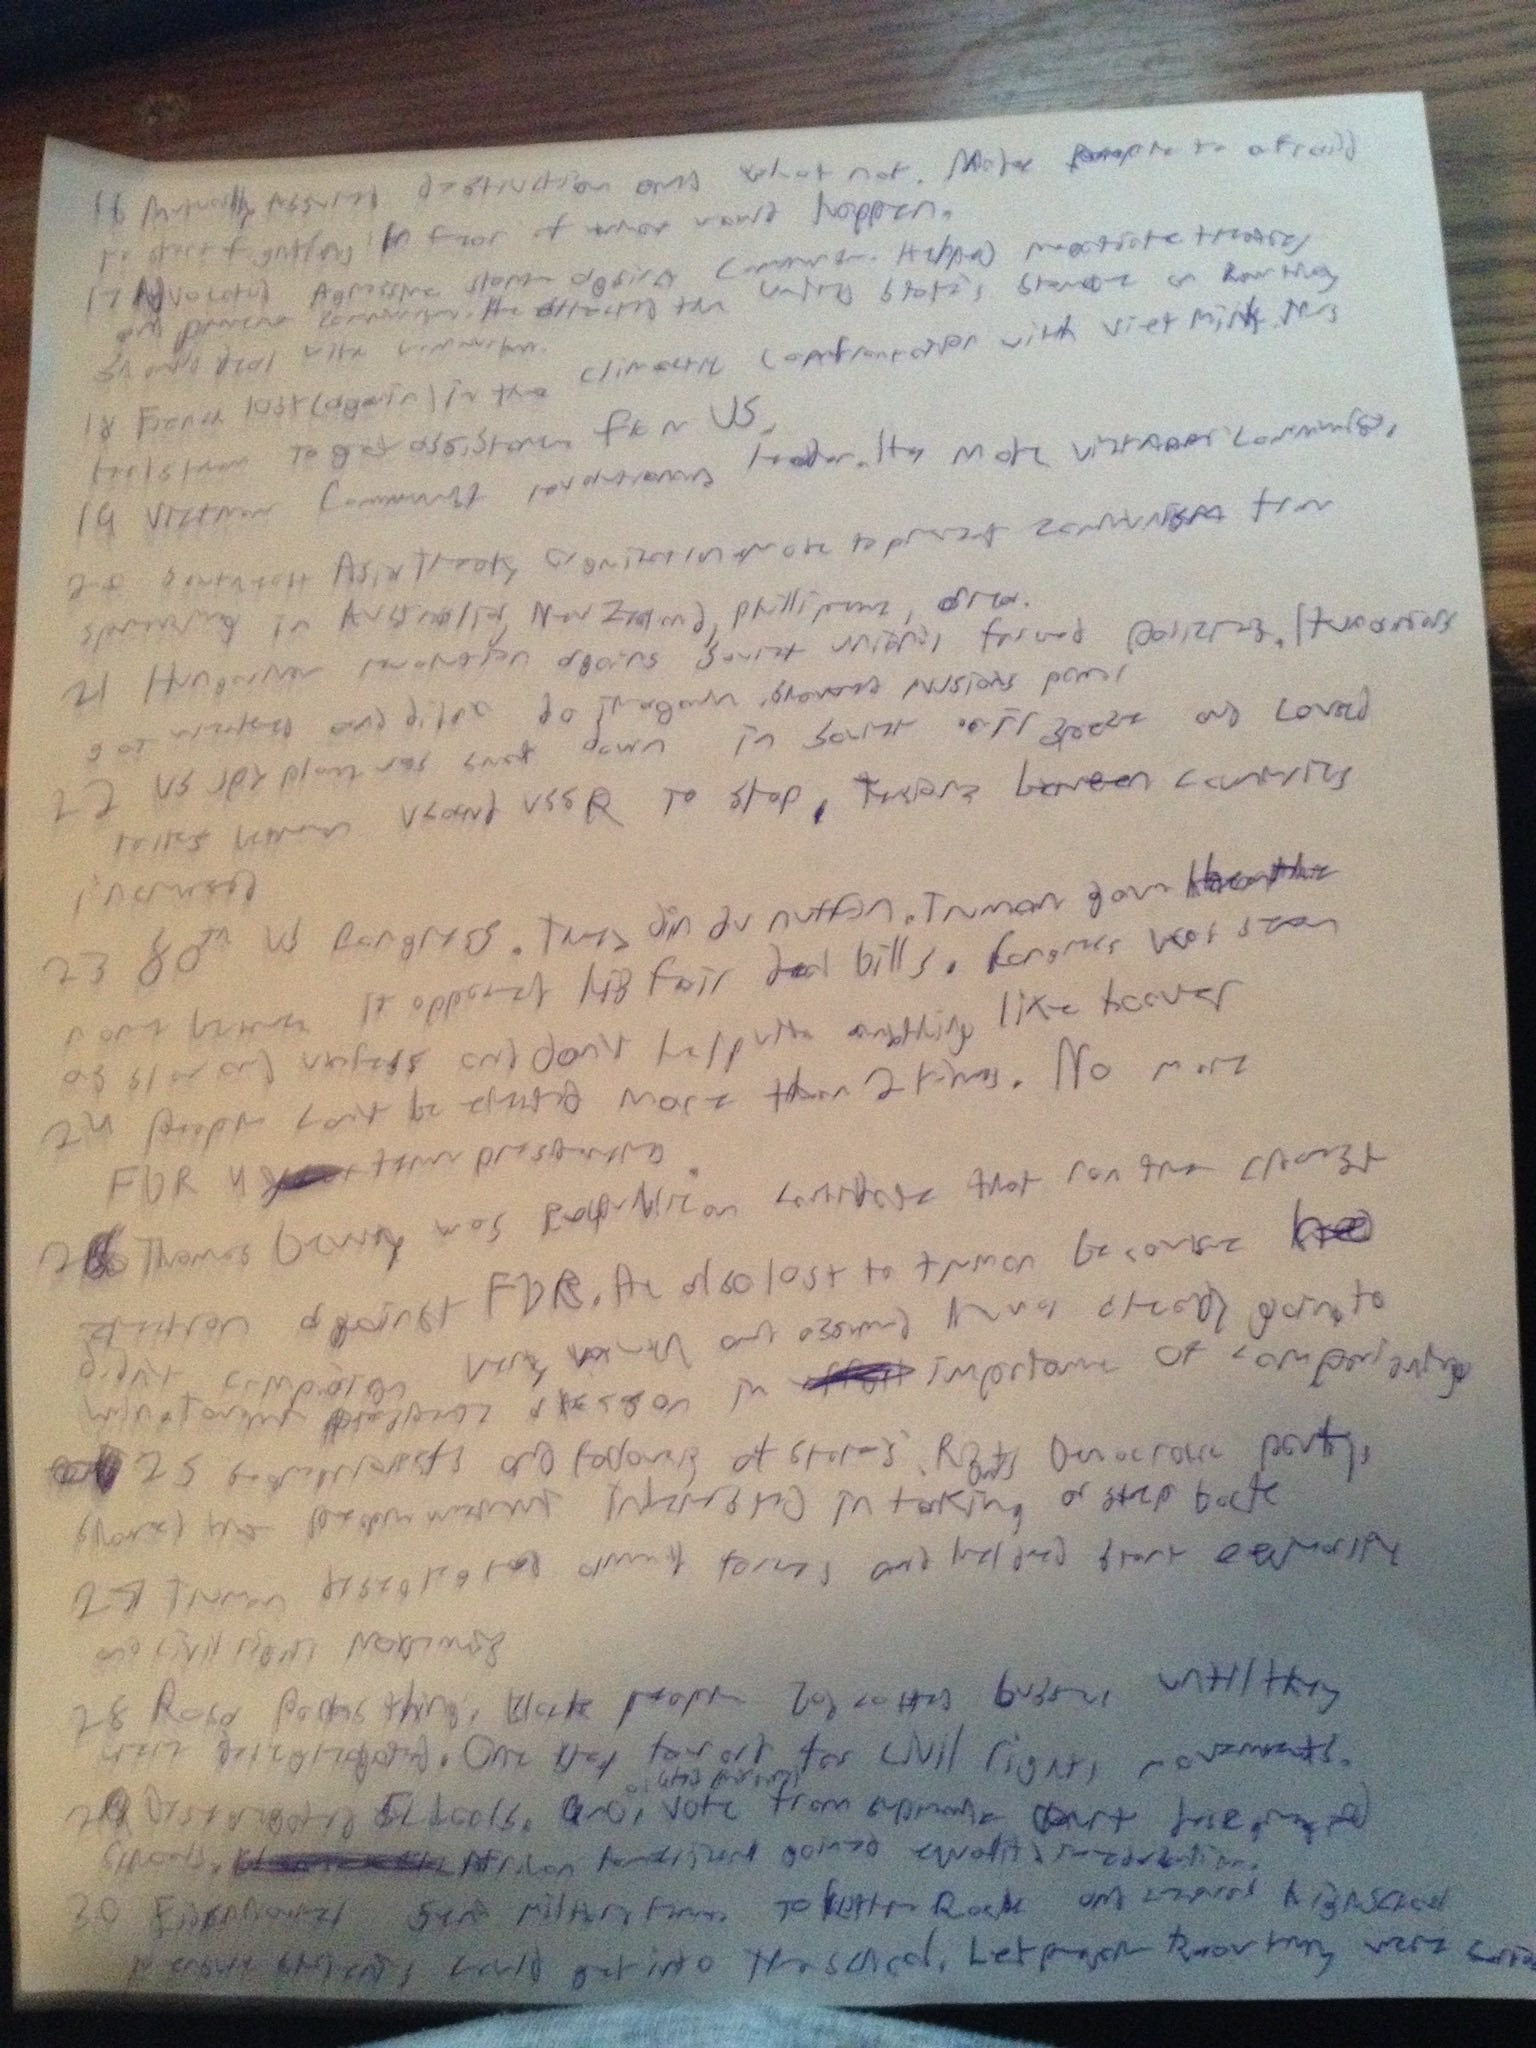 16 Mutually Assured destruction and what not. Made people to afraid
to start fighting in fear of what would happen.
17 Advocated Agressive stance against Communism. Helped negotiate treaties
and prevent communism. He affected the united state's stance on
and deal with communism.
18 French lost (again) in the climactic confrontation with Viet Minh. This
to get assistance from US.
19 Vietnam Communist revolutionary leader. He made Vietnam communist.
20 Southeast Asia Treaty Organization made to prevent communism from
spreading in Australia, New Zealand, Phillipines, area.
21 Hungarian revolution against Soviet Union's forced policies. Hungarians
got wrecked and didn't do it again. Showed russians power
22 US spy plane was shot down in Soviet air space and caused
talks between US and USSR to stop. Tensions between countries
increased
23 80th US Congress. They din du nuffin. Truman gave
name because it opposed his fair deal bills. Congress was seen
as slow and useless and don't help with anything like hoover
24 people can't be elected more than 2 times. No more
FDR 4 term presidents.
26 Thomas Dewey was Republican candidate that ran the closest
election against FDR. He also lost to truman because
didn't campaign very much and assumed he was already going to
win. taught a lesson in importance of campaigning
25 segregationists and followers of States' Rights Democratic party.
showed the interested in taking a step back
27 Truman desegregated armed forces and helped start equality
and civil rights
28 Rosa Parks thing. Black people boycotted busses until they
were desegregated. One step forward for civil rights movements.
29 Desegregated Schools. vote from supreme court desegregated
schools. African Americans gained equality in education.
30 Eisenhower sent military to Little Rock and central highschool
to ensure students could get into the school. Let people know they were